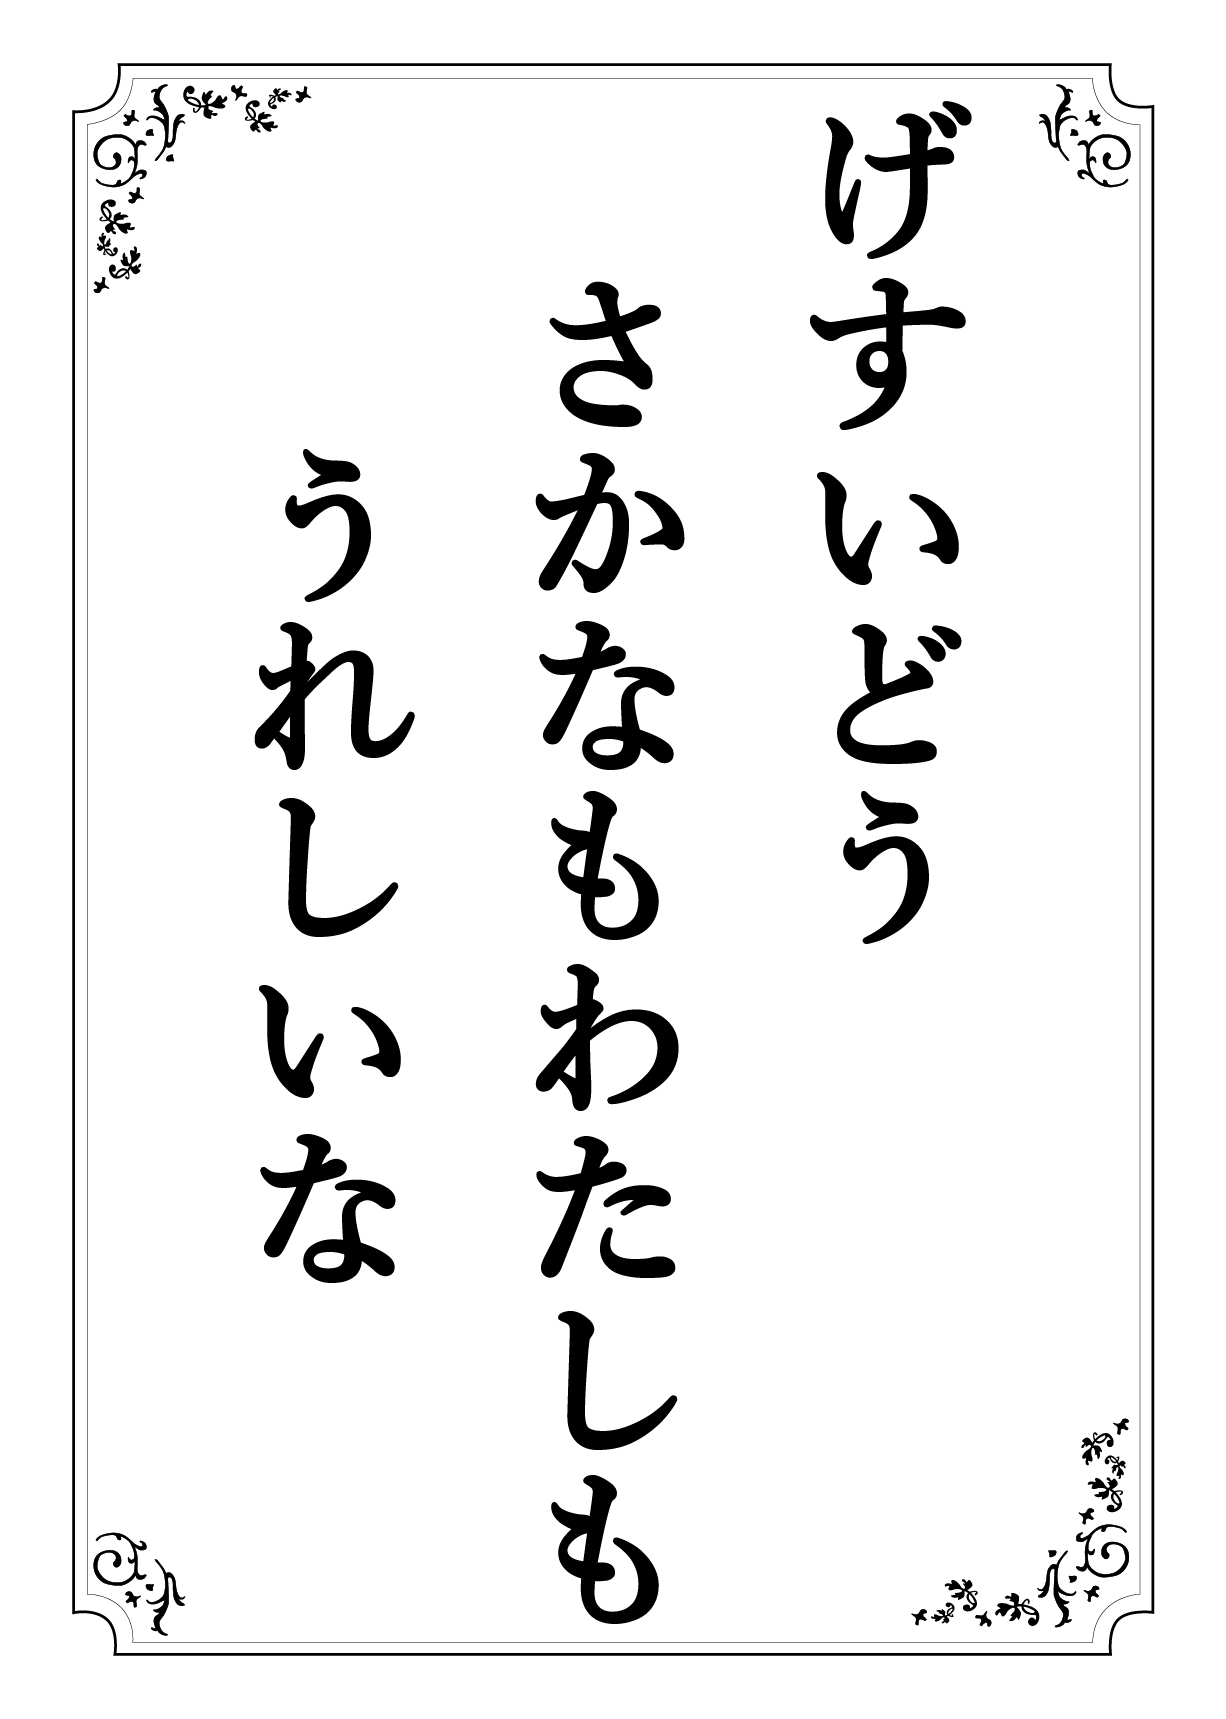 げすいどう
さかなもわたしも
うれしいな